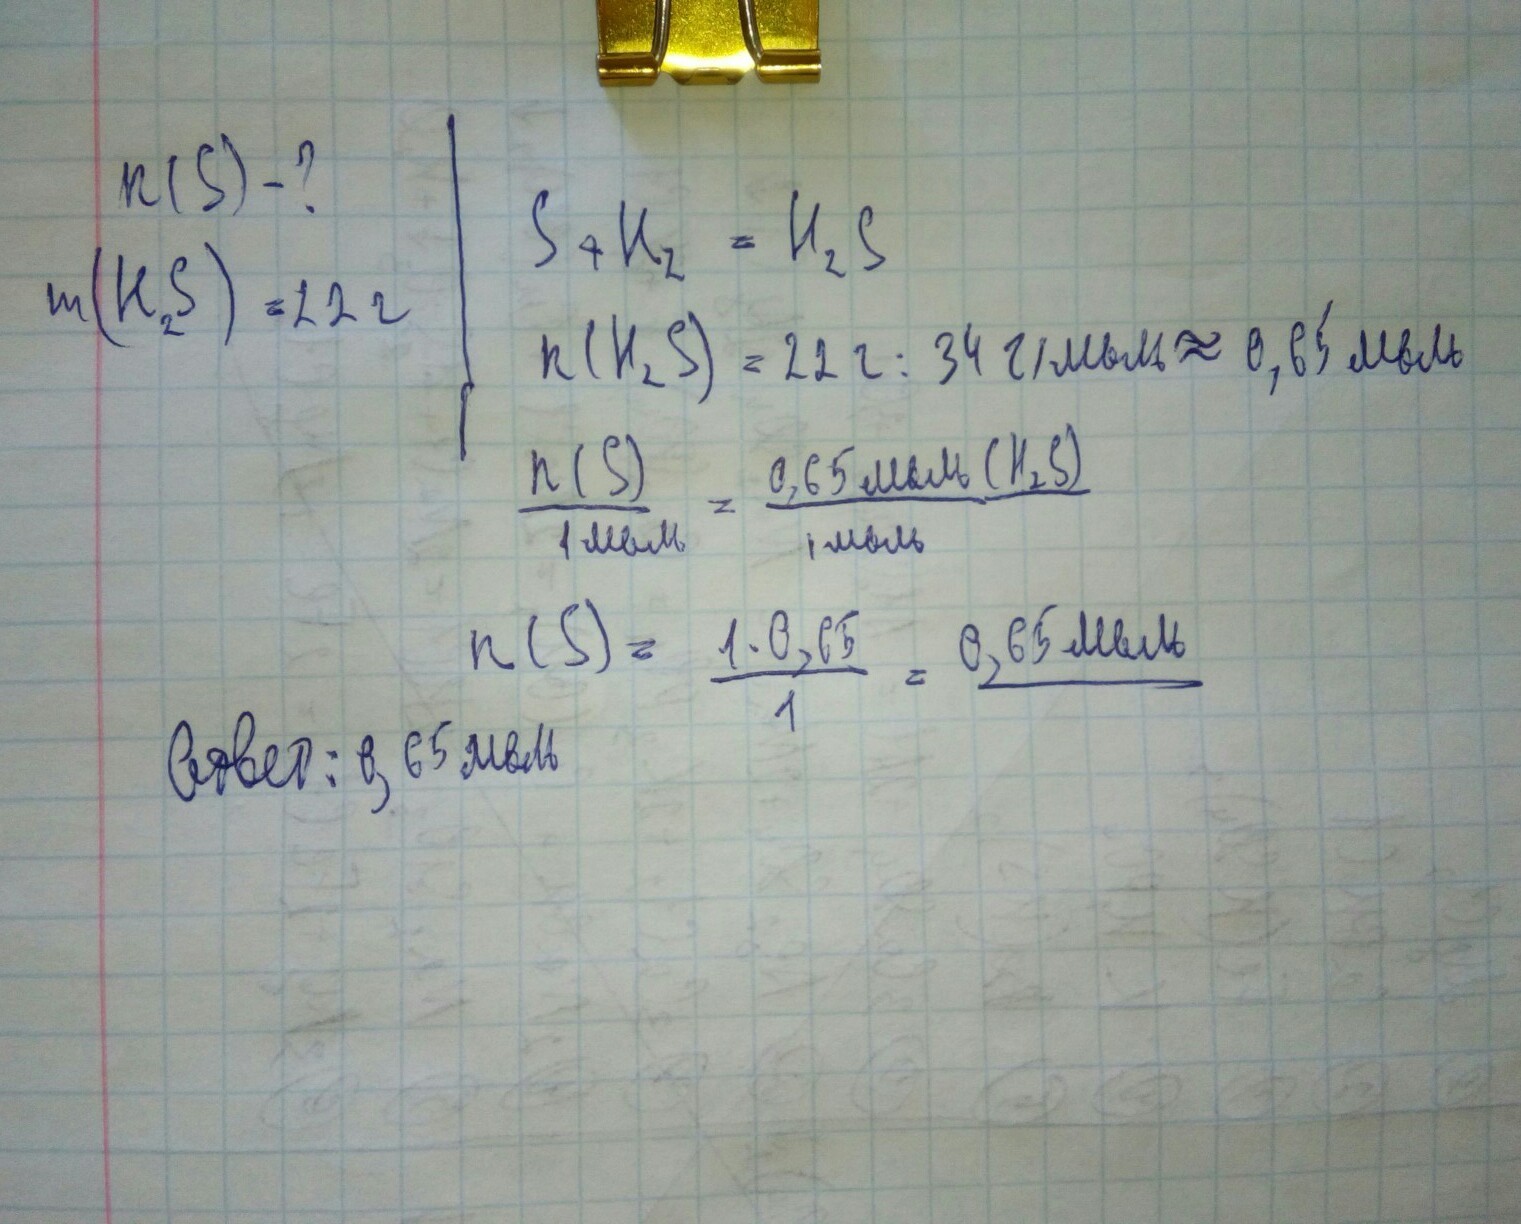 n(S)-?
m(H₂S) = 22 г
S + H₂ = H₂S
n(H₂S) = 22 г : 34 г/моль ≈ 0,65 моль
n(S) / 1 моль = 0,65 моль (H₂S) / 1 моль
n(S) = 1·0,65 / 1 = 0,65 моль
Ответ: 0,65 моль